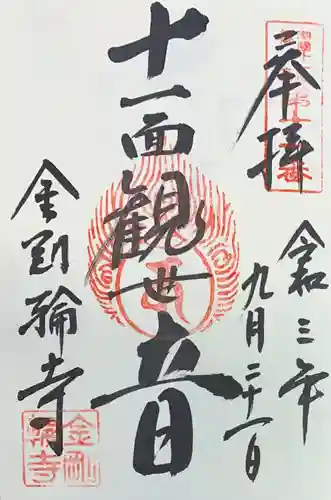 奉拝
令三年
九月二十一日
十一面観世音
金剛輪寺
金剛
輪寺